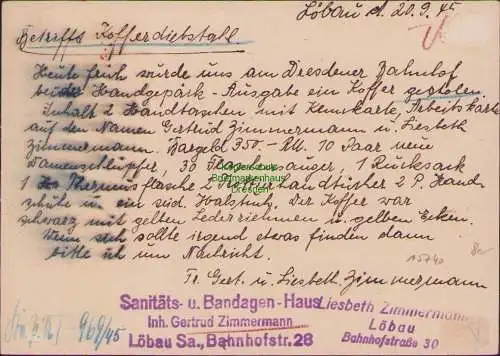 Löbau d. 20.9.45
Betrifft Kofferdiebstahl
Heute früh wurde uns am Dresdener Bahnhof
bei der Handgepäck-Ausgabe ein Koffer gestolen.
Inhalt 2 Handtaschen mit Kennkarte, Arbeitskarte
auf den Namen Gertrud Zimmermann u. Liesbeth
Zimmermann. Bargeld 350.- RM. 10 Paar neue
Damenschlüpfer, 30 1 Rucksack
1 Thermosflasche 2 2 P. Hand-
schuhe u. ein Halstuch, Der Koffer war
schwarz mit gelben Lederriemen u. gelben Ecken.
Wenn sich sollte irgend etwas finden dann
bitte ich um Nachricht.
Gert. u. Liesbeth Zimmermann
Sanitäts- u. Bandagen-Haus
Inh. Gertrud Zimmermann
Löbau Sa., Bahnhofstr. 28
Liesbeth Zimmermann
Löbau
Bahnhofstraße 30
969/45
Briefmarkenhaus
Dresden